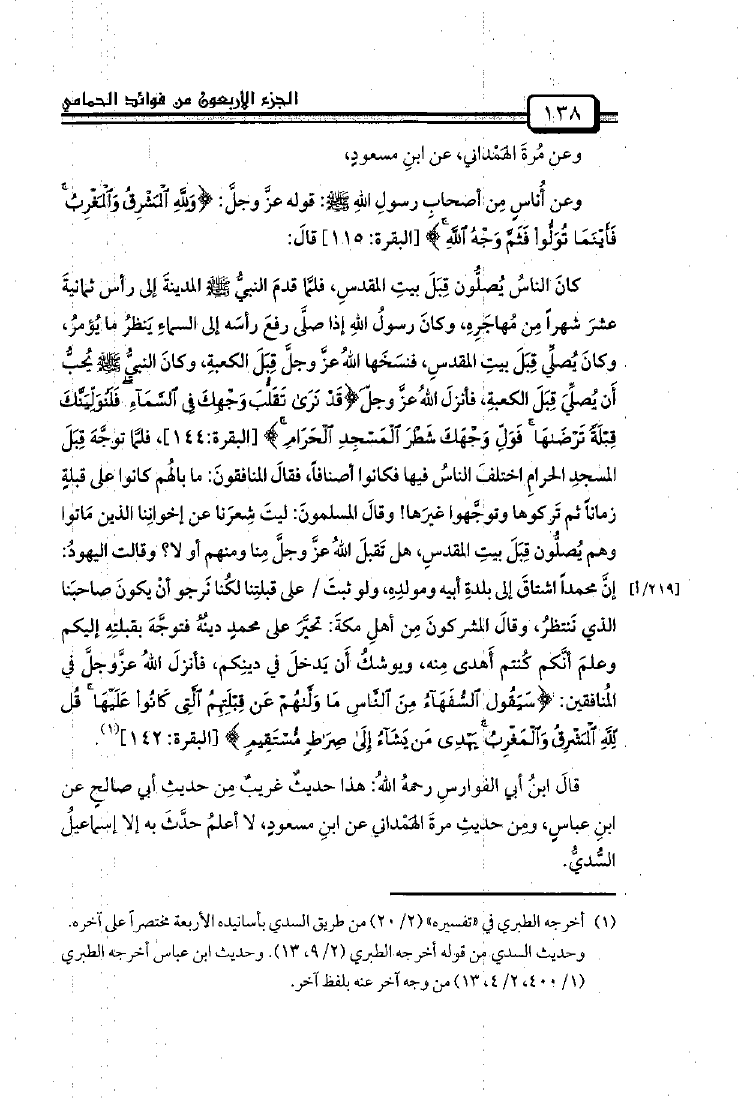 الجزء الأربعون من فوائد الحمامي
١٣٨
وعن مُرةَ الهَمْداني، عن ابنِ مسعودٍ،
وعن أُناسٍ مِن أصحابِ رسولِ اللهِ ﷺ: قوله عزَّ وجلَّ: ﴿وَلِلَّهِ الْمَشْرِقُ وَالْمَغْرِبُ ۚ
فَأَيْنَمَا تُوَلُّوا فَثَمَّ وَجْهُ اللَّهِ ۚ﴾ [البقرة: ١١٥] قالَ:
كانَ الناسُ يُصلُّون قِبَلَ بيتِ المقدسِ، فلمَّا قدمَ النبيُّ ﷺ المدينةَ إلى رأسِ ثمانيةَ
عشرَ شهراً مِن مُهاجَرِهِ، وكانَ رسولُ اللهِ إذا صلَّى رفعَ رأسَه إلى السماءِ يَنظرُ ما يُؤمرُ،
وكانَ يُصلِّي قِبَلَ بيتِ المقدسِ، فنسَخَها اللهُ عزَّ وجلَّ قِبَلَ الكعبةِ، وكانَ النبيُّ ﷺ يُحبُّ
أن يُصلِّيَ قِبَلَ الكعبةِ، فأنزلَ اللهُ عزَّ وجلَّ ﴿قَدْ نَرَىٰ تَقَلُّبَ وَجْهِكَ فِي السَّمَاءِ ۖ فَلَنُوَلِّيَنَّكَ
قِبْلَةً تَرْضَىٰهَا ۚ فَوَلِّ وَجْهَكَ شَطْرَ الْمَسْجِدِ الْحَرَامِ ۚ﴾ [البقرة:١٤٤]، فلمَّا توجَّهَ قِبَلَ
المسجدِ الحرامِ اختلفَ الناسُ فيها فكانوا أصنافاً، فقالَ المنافقونَ: ما بالُهم كانوا على قبلةٍ
زماناً ثم تَركوها وتوجَّهوا غيرَها! وقالَ المسلمونَ: ليتَ شِعرَنا عن إخوانِنا الذين مَاتوا
وهم يُصلُّون قِبَلَ بيتِ المقدسِ، هل تَقبلَ اللهُ عزَّ وجلَّ مِنا ومنهم أو لا؟ وقالت اليهودُ:
إنَّ محمداً اشتاقَ إلى بلدةِ أبيه ومولدِهِ، ولو ثبتَ / على قبلتِنا لكُنا نَرجو أنْ يكونَ صاحبَنا [٢١٩/أ]
الذي نَنتظرُ، وقالَ المشركونَ مِن أهلِ مكةَ: تحيَّرَ على محمدٍ دينُهُ فتوجَّهَ بقبلتِهِ إليكم
وعلمَ أنَّكم كُنتم أهدى مِنه، ويوشكُ أن يَدخلَ في دينِكم، فأنزلَ اللهُ عزَّ وجلَّ في
المُنافقين: ﴿سَيَقُولُ السُّفَهَاءُ مِنَ النَّاسِ مَا وَلَّىٰهُمْ عَن قِبْلَتِهِمُ الَّتِي كَانُوا عَلَيْهَا ۚ قُل
لِلَّهِ الْمَشْرِقُ وَالْمَغْرِبُ ۚ يَهْدِي مَن يَشَاءُ إِلَىٰ صِرَٰطٍ مُّسْتَقِيمٍ﴾ [البقرة: ١٤٢](١).
قالَ ابنُ أبي الفوارسِ رحمهُ اللهُ: هذا حديثٌ غريبٌ مِن حديثِ أبي صالحٍ عن
ابنِ عباسٍ، ومِن حديثِ مرةَ الهَمْداني عن ابنِ مسعودٍ، لا أعلمُ حدَّثَ به إلا إسماعيلُ
السُّديُّ.
(١) أخرجه الطبري في «تفسيره» (٢/ ٢٠) من طريق السدي بأسانيده الأربعة مختصراً على آخره.
وحديث السدي من قوله أخرجه الطبري (٢/ ٩، ١٣). وحديث ابن عباس أخرجه الطبري
(١/ ٤٠٠، ٢/ ٤، ١٣) من وجه آخر عنه بلفظ آخر.